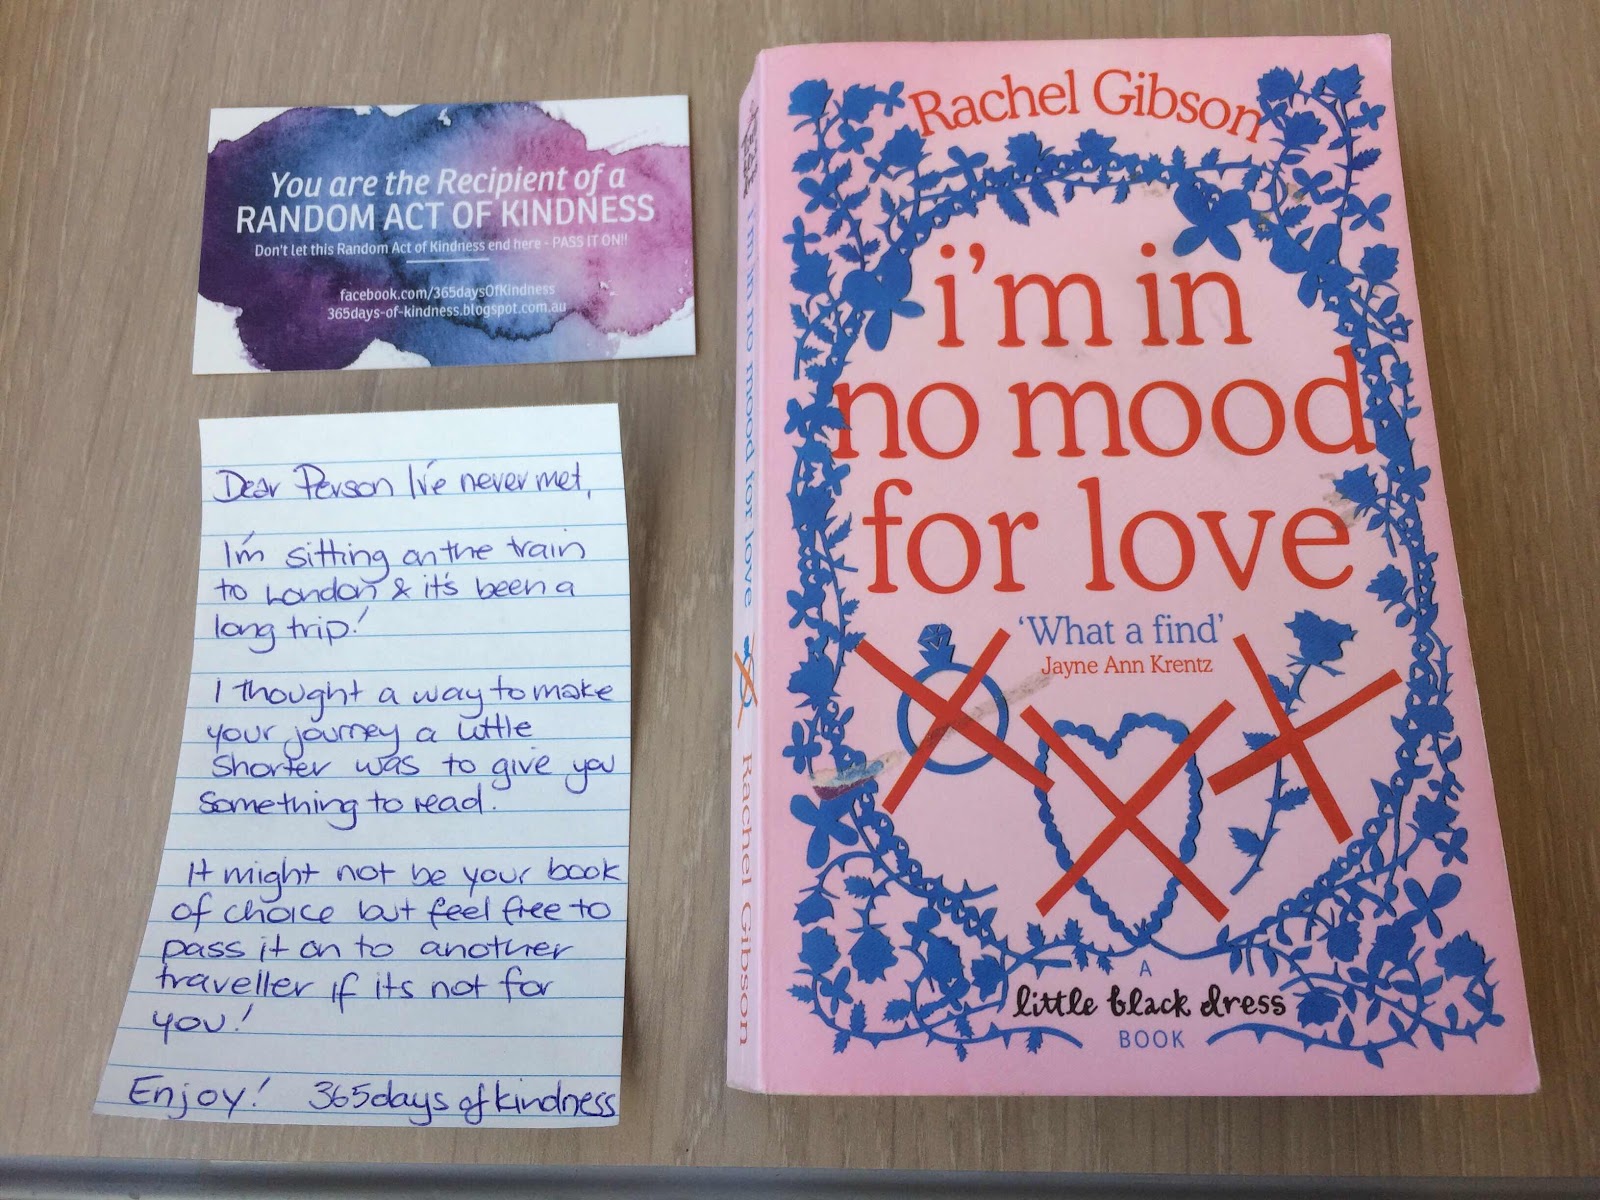 You are the Recipient of a
RANDOM ACT OF KINDNESS
Don't let this Random Act of Kindness end here - PASS IT ON!!
facebook.com/365daysOfKindness
365days-of-kindness.blogspot.com.au
Dear Person I've never met,
I'm sitting on the train
to London & it's been a
long trip!
I thought a way to make
your journey a little
shorter was to give you
something to read.
It might not be your book
of choice but feel free to
pass it on to another
traveller if its not for
you!
Enjoy! 365daysofkindness
I'm in no mood for love Rachel Gibson
Rachel Gibson
i'm in
no mood
for love
'What a find'
Jayne Ann Krentz
A
little black dress
BOOK